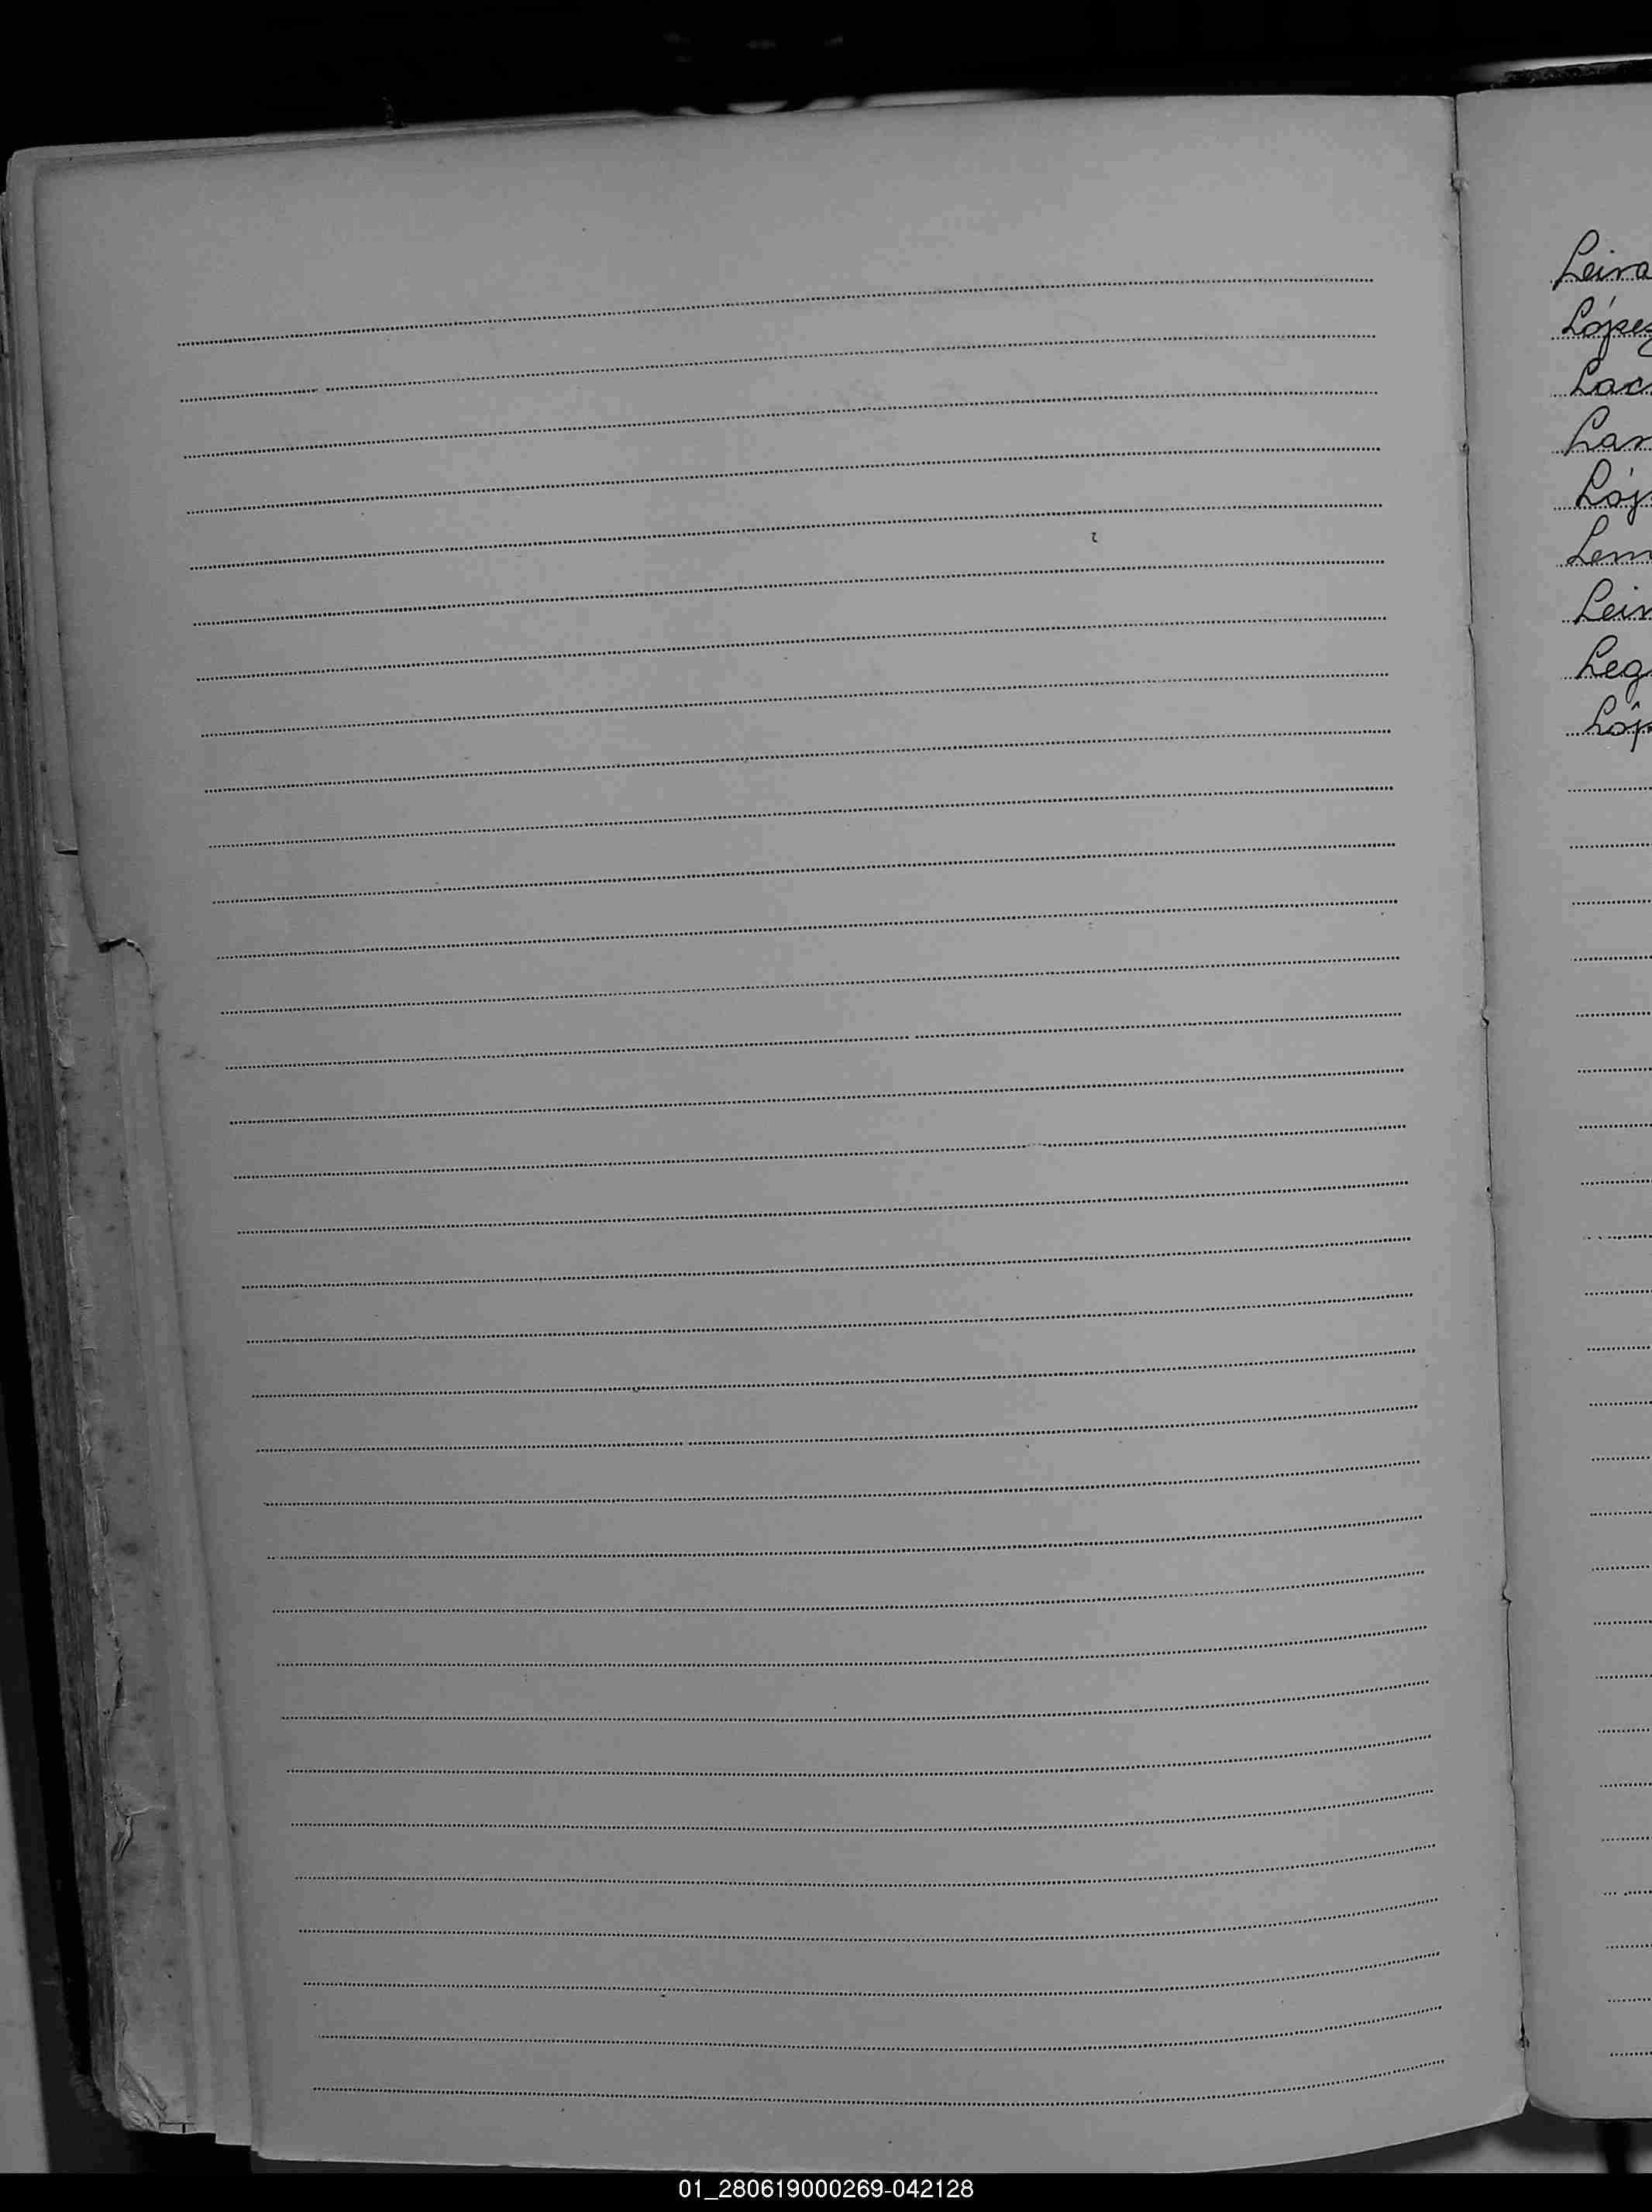 Leiva
López
Lac
Lar
Lóp
Lem
Leiv
Leg
Lóp
01_280619000269-042128